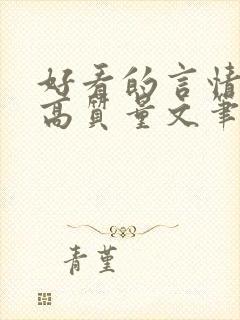 好看的言情
高质量文笔
青堇